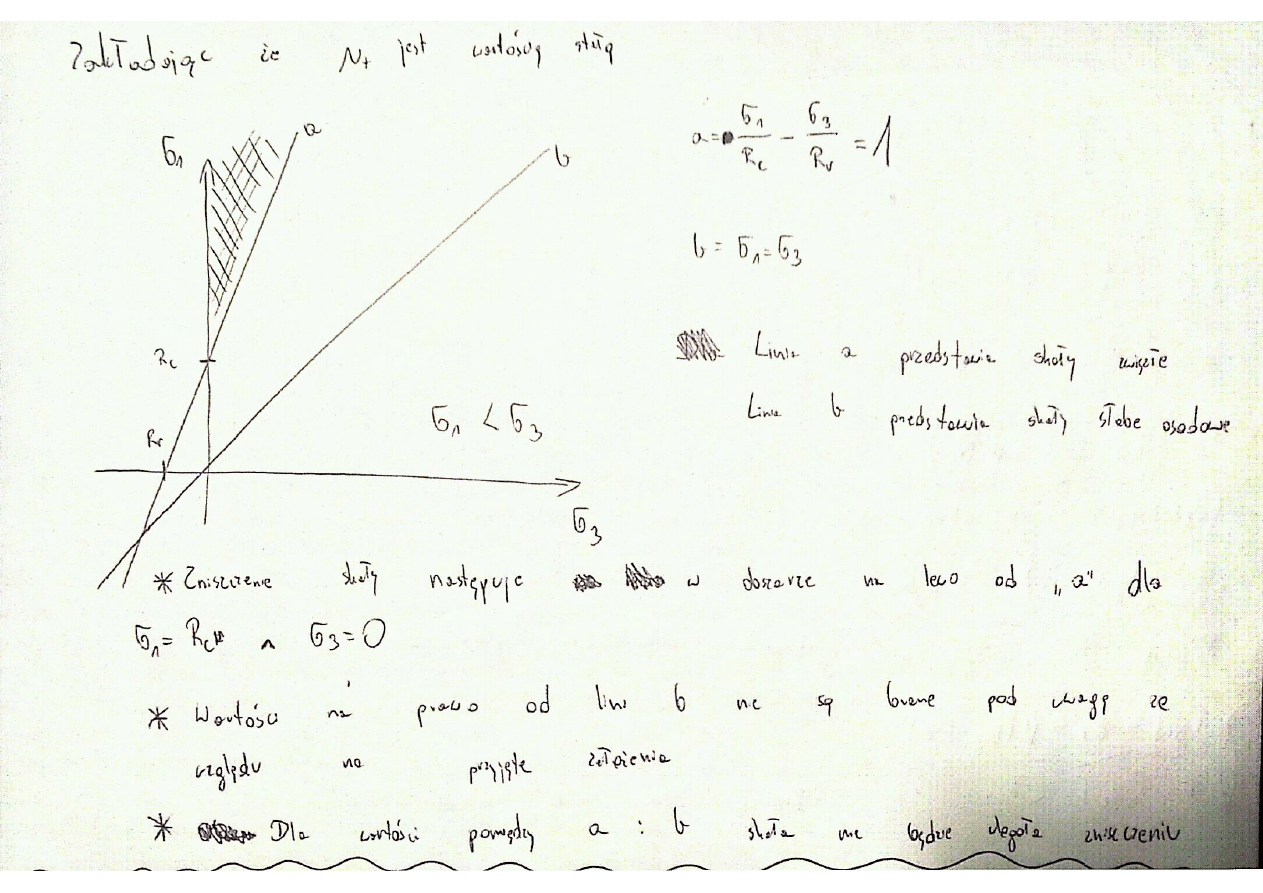 Zakładając że N+ jest wartością stałą
a = σ1/Rc - σ3/Rr = 1
b = σ1=σ3
Linia a przedstawia skały zwięzłe
Linia b przedstawia skały słabe osadowe
σ1
a
b
Rc
Rr
σ1 < σ3
σ3
* Zniszczenie skały następuje w obszarze na lewo od „a" dla
σ1= Rc ∧ σ3=0
* Wartości na prawo od lini b nie są brane pod uwagę ze
względu na przyjęte założenia
* Dla wartości pomiędzy a i b skała nie będzie ulegała zniszczeniu